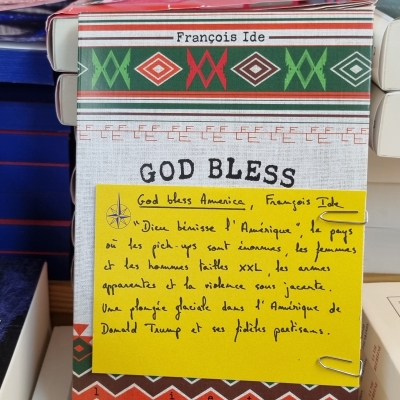 François Ide
GOD BLESS
God bless America, François Ide
"Dieu bénisse l'Amérique", le pays
où les pick-ups sont énormes, les femmes
et les hommes taillés XXL, les armes
apparentes et la violence sous jacente.
Une plongée glaciale dans l'Amérique de
Donald Trump et ses fidèles partisans.